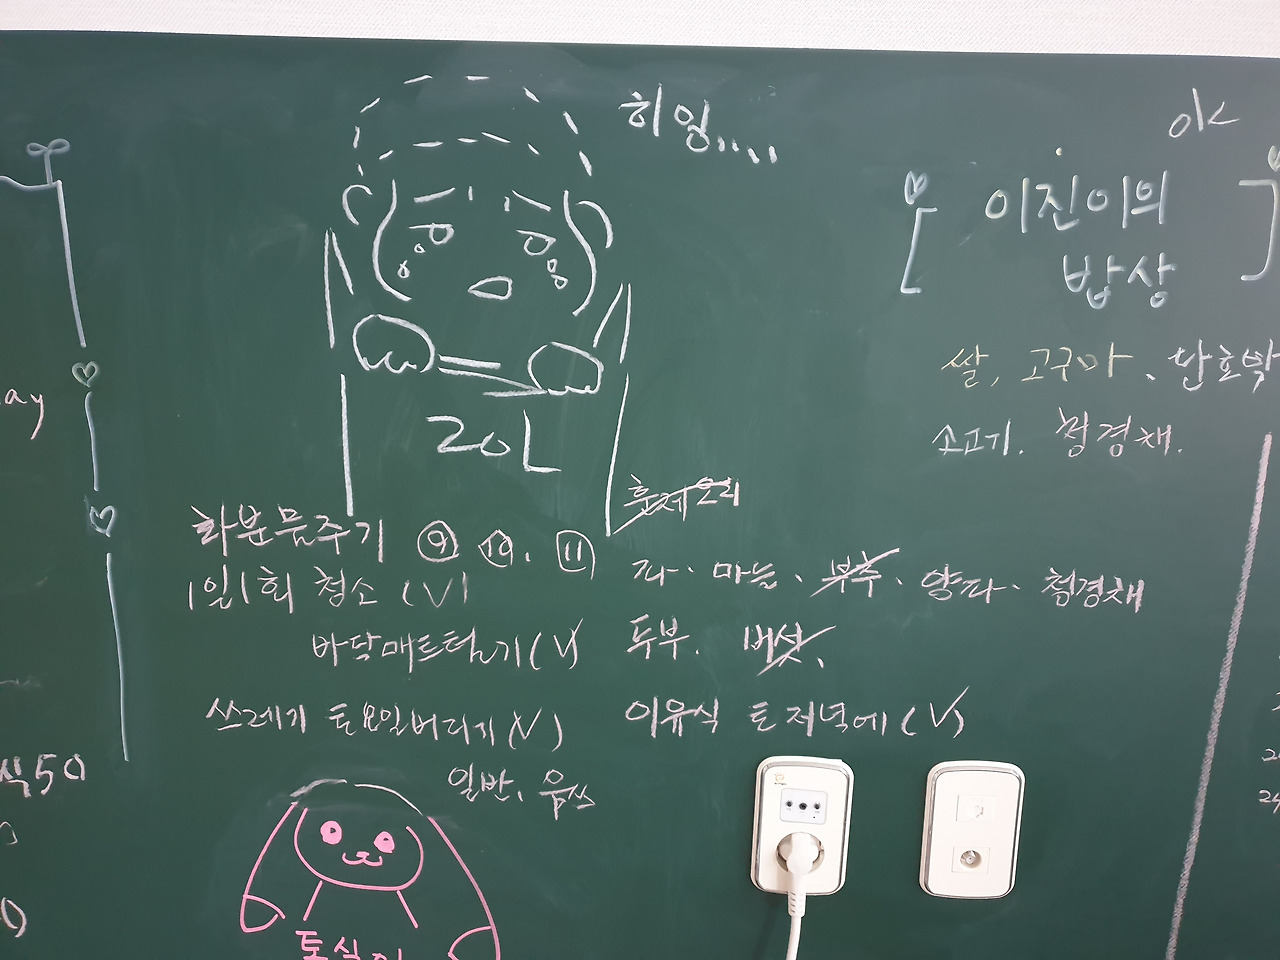 히잉....
ok
이진이의
밥상
쌀, 고구마、단호박
소고기. 청경채.
ay
20L
훈제오리
화분물주기 ⑨ ⑩. 11
1일1회 청소 (V)
바닥매트털기(V)
파、마늘、부추、양파、청경채
두부. 버섯、
쓰레기 토요일버리기(V)
일반、음쓰
이유식 토 저녁에(V)
식50
24